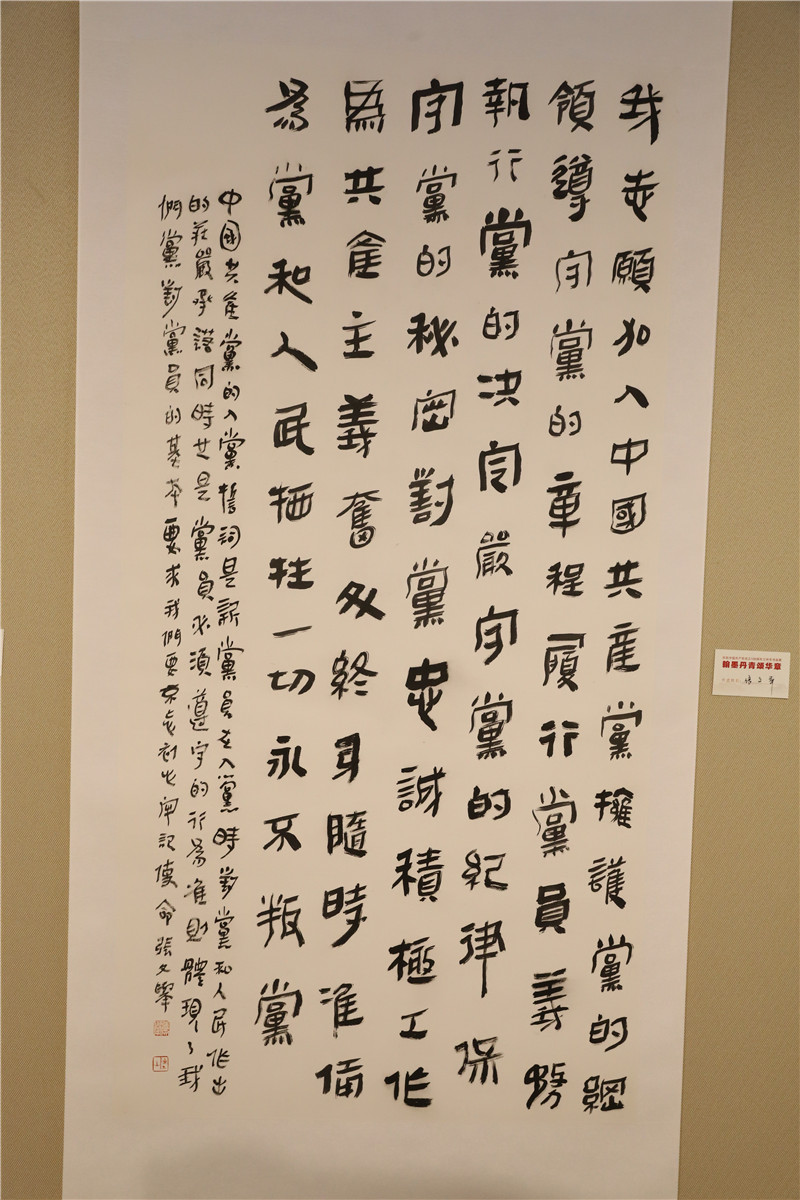 我志願加入中國共產黨擁護黨的綱
領導守黨的章程履行黨員義務
執行黨的決定嚴守黨的紀律保
守黨的秘密對黨忠誠積極工作
為共產主義奮鬥終身隨時准備
為黨和人民牺牲一切永不叛黨
中國共產黨的入黨誓詞是新黨員在入黨時對黨和人民作出
的莊嚴承諾同時也是黨員必須遵守的行為准則體現了我
們黨對黨員的基本要求我們要不忘初心牢記使命張文舉
翰墨丹青颂华章